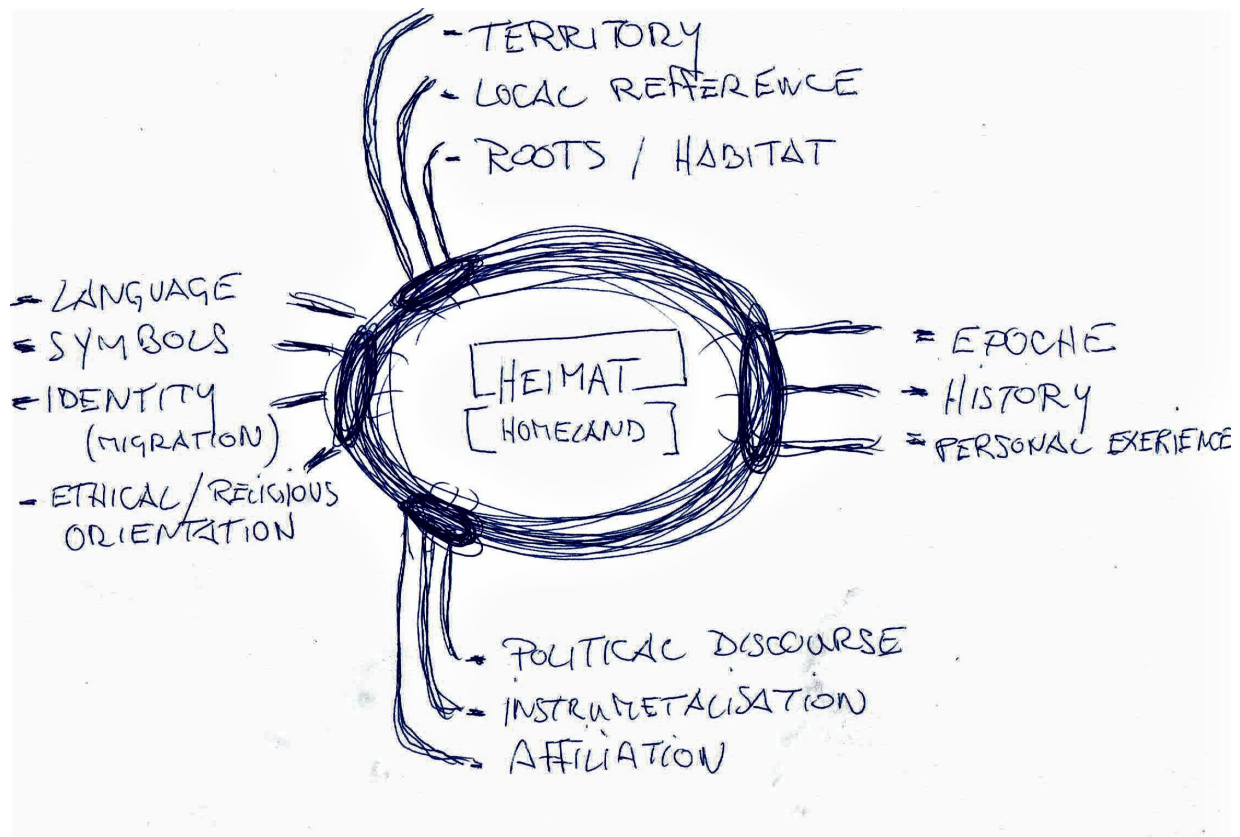 - TERRITORY
- LOCAL REFFERENCE
- ROOTS / HABITAT
- LANGUAGE
- SYMBOLS
- IDENTITY
(MIGRATION)
- ETHICAL / RELIGIOUS
ORIENTATION
HEIMAT
[HOMELAND]
- EPOCHE
- HISTORY
- PERSONAL EXERIENCE
- POLITICAL DISCOURSE
- INSTRUMETALISATION
- AFFILIATION